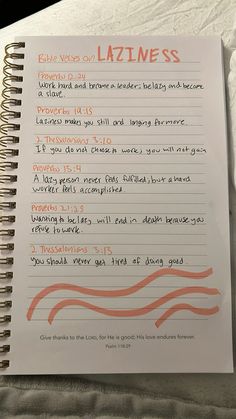 Bible Verses on LAZINESS
Proverbs 12:24
Work hard and become a leader; be lazy and become
a slave.
Proverbs 19:15
Laziness makes you still and longing for more.
2 Thessalonians 3:10
If you do not choose to work, you will not gain
Proverbs 13:4
A lazy person never feels fulfilled, but a hard
worker feels accomplished.
Proverbs 21:25
Wanting to be lazy will end in death because you
refuse to work.
2 Thessalonians 3:13
You should never get tired of doing good.
Give thanks to the LORD, for He is good; His love endures forever.
Psalm 118:29